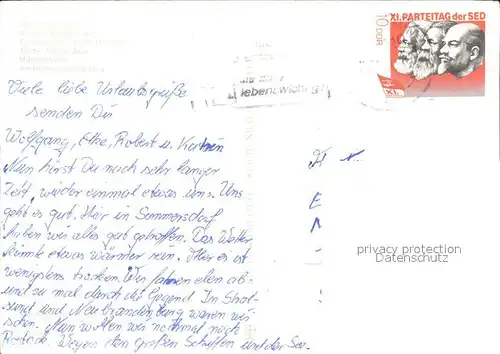 10 DDR
XI. PARTEITAG der SED
XI.
lebenswichtig
Viele liebe Urlaubsgrüße
senden Dir
Wolfgang, Elke, Robert u. Katrin
Nun hörst Du nach sehr langer
Zeit, wieder einmal etwas uns. Uns
geht es gut. Hier in Sommersdorf
haben wir alles gut getroffen. Das Wetter
könnte etwas wärmer sein. Aber es ist
wenigstens trocken. Wir fahren eben ab-
und zu mal durch die Gegend. In Stral-
sund und Neubrandenburg waren wir
schon. Nun wollen wir nochmal nach
Rostock. Wegen den großen Schiffen und der See.
privacy protection
Datenschutz